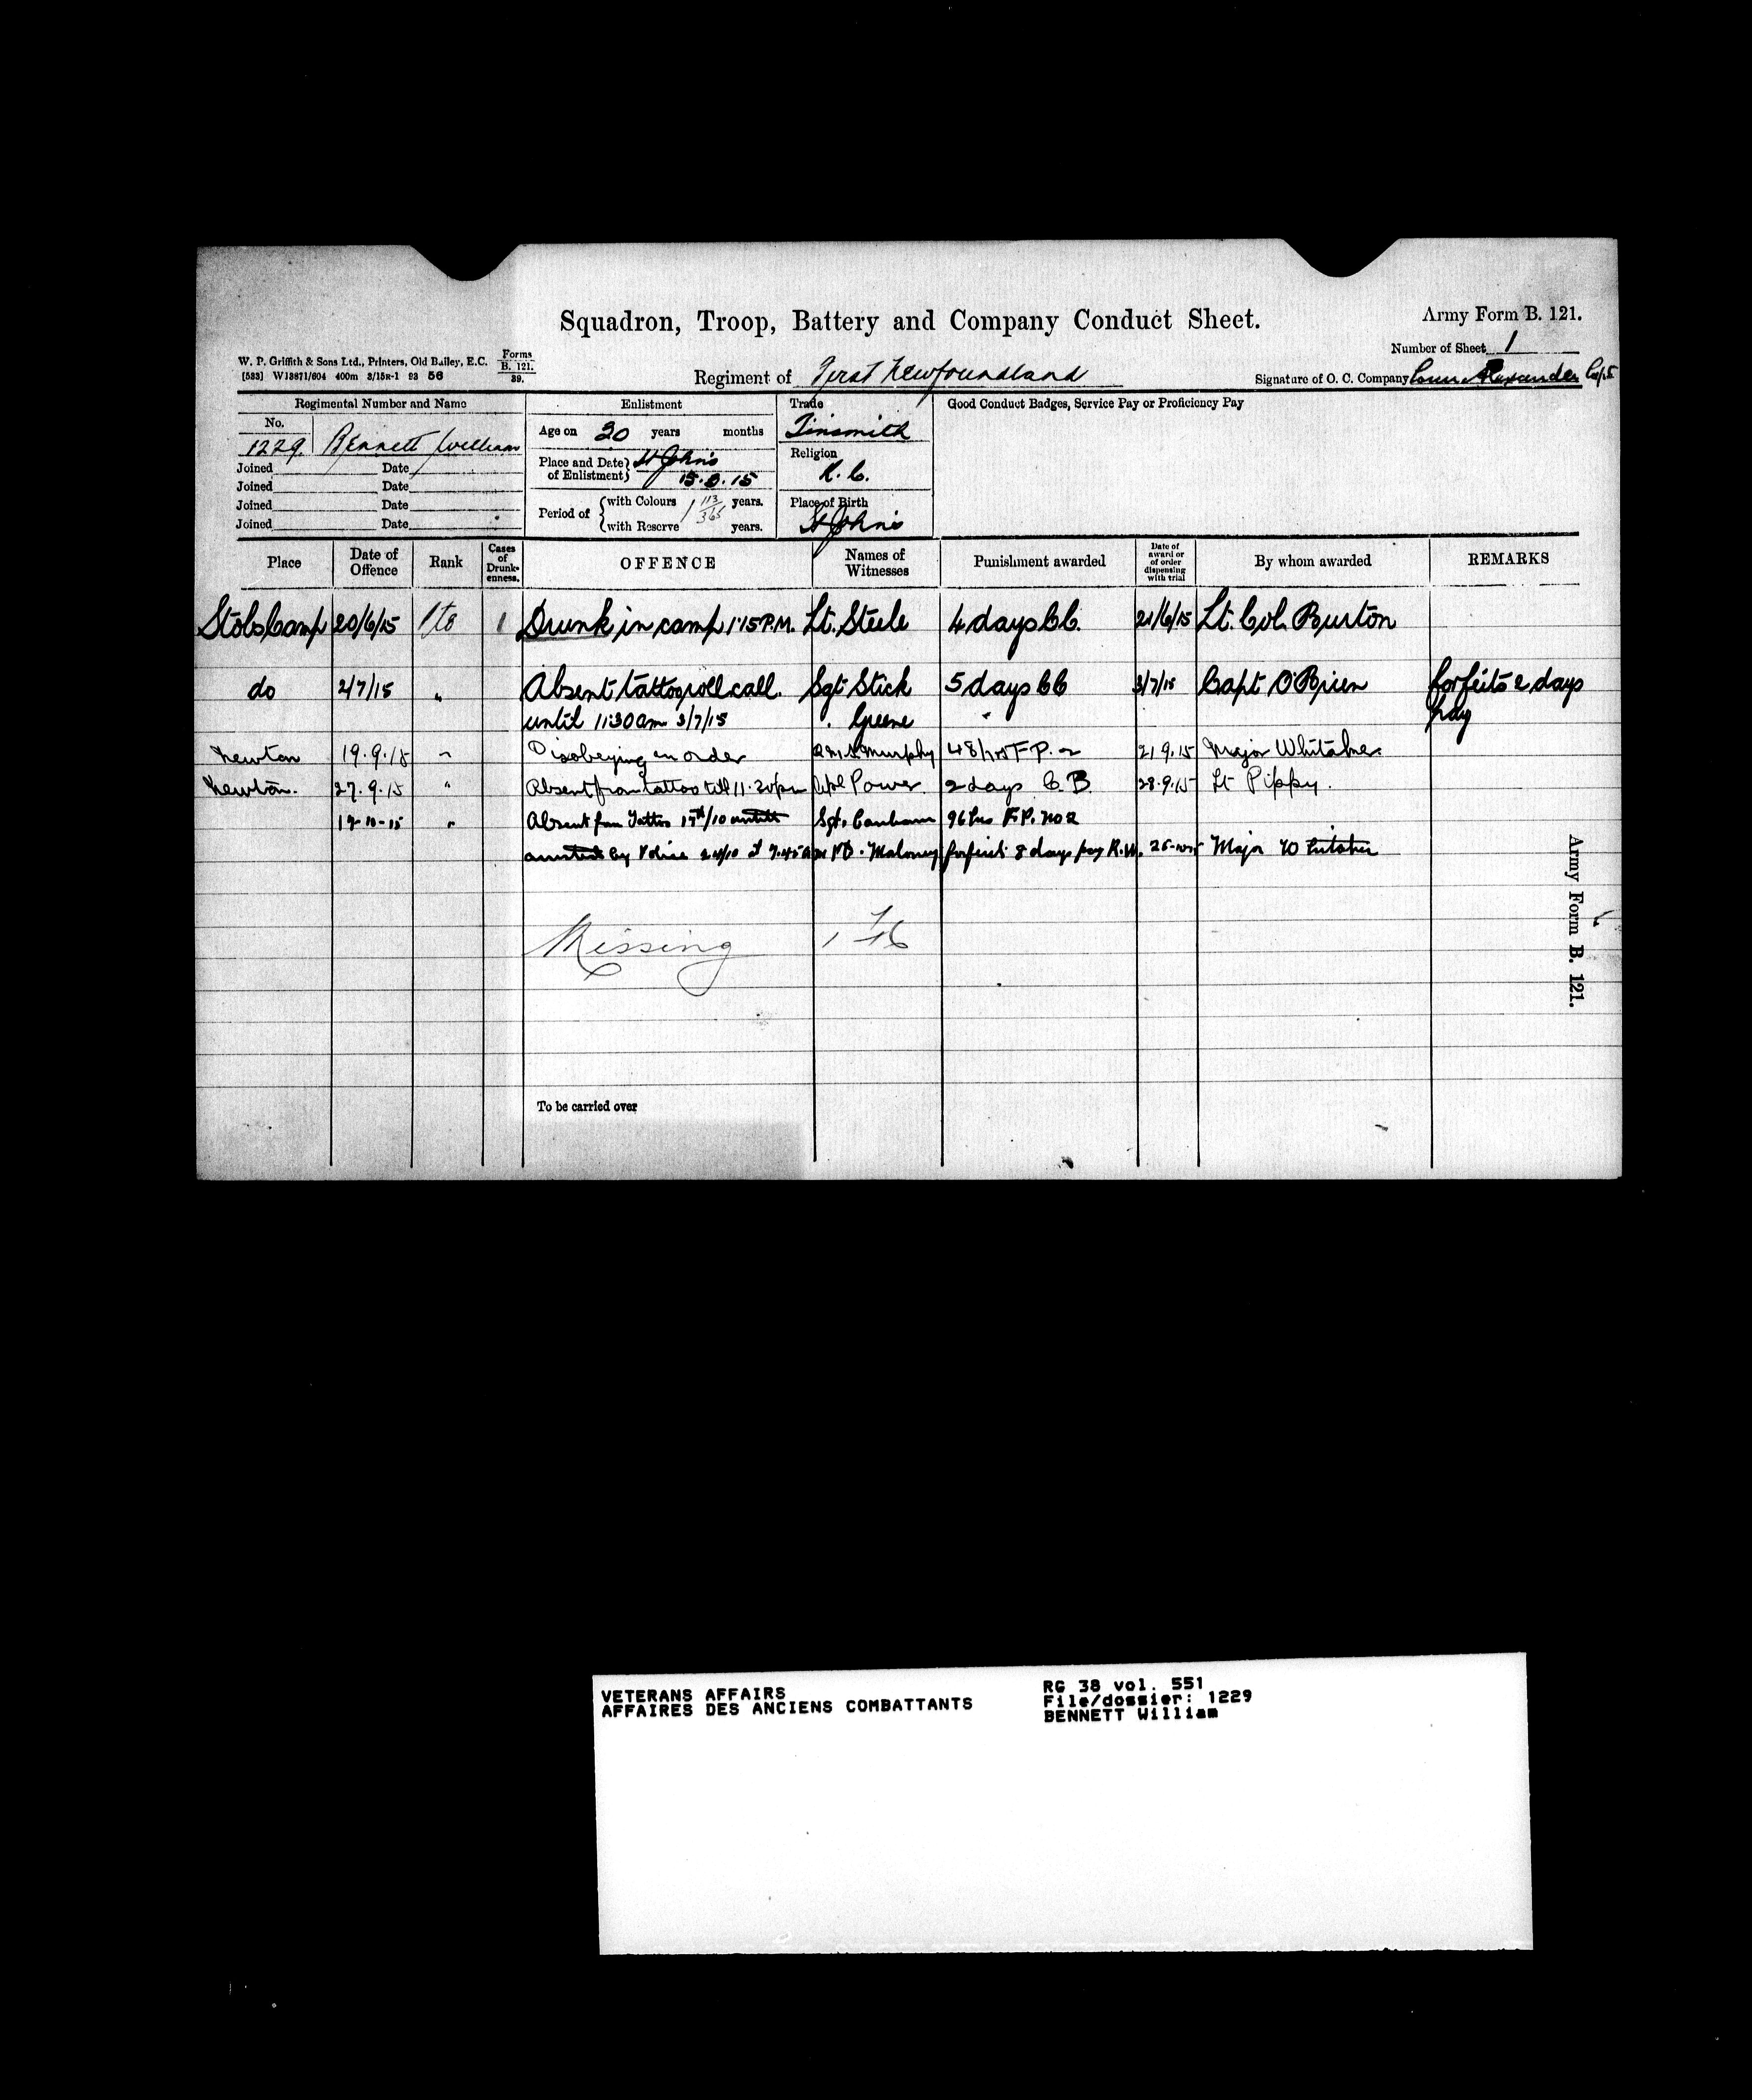 Squadron, Troop, Battery and Company Conduct Sheet.
Army Form B. 121.
Number of Sheet 1
W. P. Griffith & Sons Ltd., Printers, Old Bailey, E.C.
[533] W13871/604 400m 3/15R-1 93 56
Forms B. 121. 39.
Regiment of First Newfoundland
Signature of O. C. Company Alexander Capt
Regimental Number and Name
No.
1229. Bennett William
Joined Date
Joined Date
Joined Date
Joined Date
Enlistment
Age on 20 years months
Place and Date of Enlistment St John's
15. .15
Period of with Colours 1 113/365 years.
with Reserve years.
Trade
Tinsmith
Religion
R. C.
Place of Birth
St John's
Good Conduct Badges, Service Pay or Proficiency Pay
Place Date of Offence Rank Cases of Drunkenness. OFFENCE Names of Witnesses Punishment awarded Date of award or of order dispensing with trial By whom awarded REMARKS
Stobs Camp 20/6/15 Pte 1 Drunk in camp 1.15 P.M. Lt. Steele 4 days CC. 21/6/15 Lt. Col. Burton
do 2/7/15 " Absent tattoo roll call. Sgt Stick 5 days CC 3/7/15 Capt O'Brien forfeits 2 days
until 11.30 am 3/7/15 " Greene " pay
Newton 19.9.15 " Disobeying an order Murphy 48 hrs F.P. 2 21.9.15 Major Whitaker.
Newton. 27.9.15 " Absent from tattoo till 11.30 pm Cpl Power. 2 days C.B. 28.9.15 Lt Pippy.
19-10-15 " Absent from Tattoo /10 until Sgt. Canham 96 hrs F.P. no 2
arrested by Police /10 at 7.45 Maloney forfeit 8 days pay R.W. Major Whitaker
Missing 1 7 16
To be carried over
Army Form B. 121.
VETERANS AFFAIRS
AFFAIRES DES ANCIENS COMBATTANTS
RG 38 vol. 551
File/dossier: 1229
BENNETT William